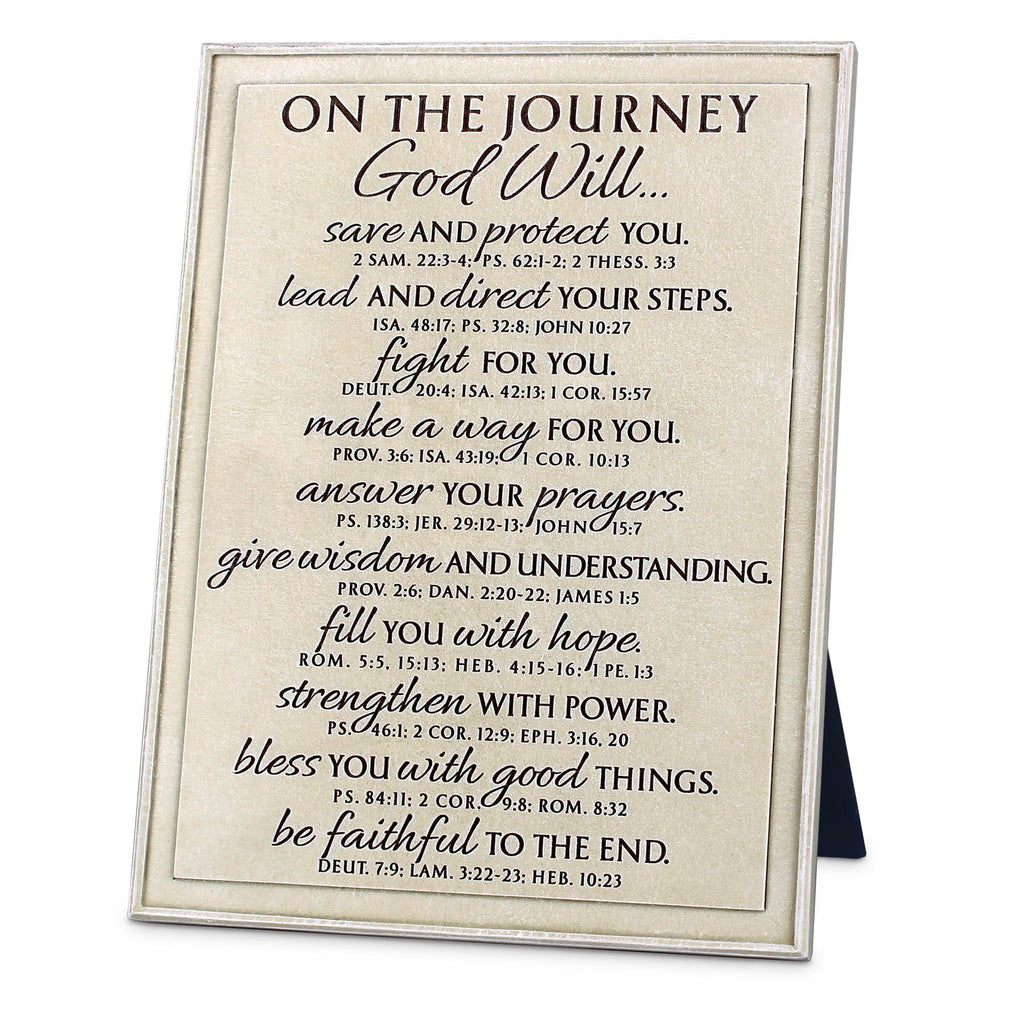 ON THE JOURNEY
God Will...
save AND protect YOU.
2 SAM. 22:3-4; PS. 62:1-2; 2 THESS. 3:3
lead AND direct YOUR STEPS.
ISA. 48:17; PS. 32:8; JOHN 10:27
fight FOR YOU.
DEUT. 20:4; ISA. 42:13; 1 COR. 15:57
make a way FOR YOU.
PROV. 3:6; ISA. 43:19; 1 COR. 10:13
answer YOUR prayers.
PS. 138:3; JER. 29:12-13; JOHN 15:7
give wisdom AND UNDERSTANDING.
PROV. 2:6; DAN. 2:20-22; JAMES 1:5
fill YOU with hope.
ROM. 5:5, 15:13; HEB. 4:15-16; 1 PE. 1:3
strengthen WITH POWER.
PS. 46:1; 2 COR. 12:9; EPH. 3:16, 20
bless YOU with good THINGS.
PS. 84:11; 2 COR. 9:8; ROM. 8:32
be faithful TO THE END.
DEUT. 7:9; LAM. 3:22-23; HEB. 10:23